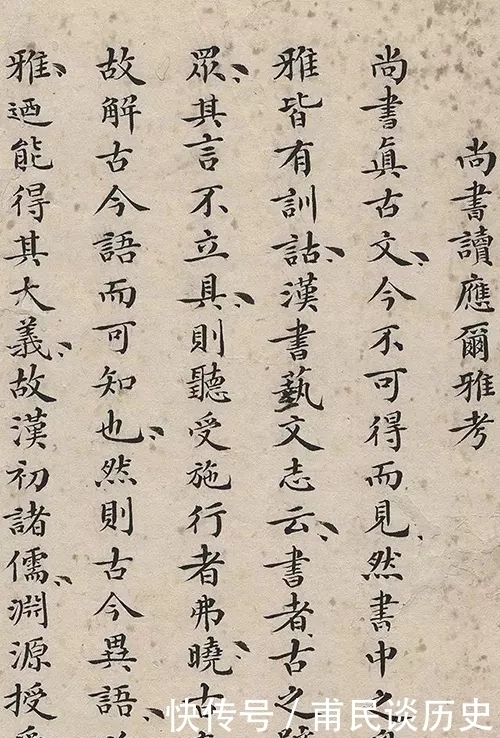 尚書讀應爾雅考
尚書真古文、今不可得而見、然書中之
雅皆有訓詁、漢書藝文志云、書者、古之
眾、其言不立具、則聽受施行者弗曉、古
故解古今語而可知也、然則古今異語、
雅、迺能得其大義、故漢初諸儒、淵源授
快传号/甫民谈历史